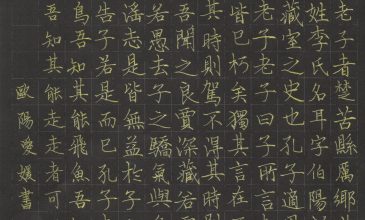 老子者楚苦縣厲鄉
姓李氏名耳字伯陽
藏室之史也孔子適
老子老子曰子所言
皆已朽矣獨其言在
其時則駕不得其時
吾聞之良賈深藏若
若愚去子之驕氣與
滛志是皆無益於子
告子若是而已孔子
鳥吾知其能飛魚吾
吾知其能走走者可
歐陽愛媛書